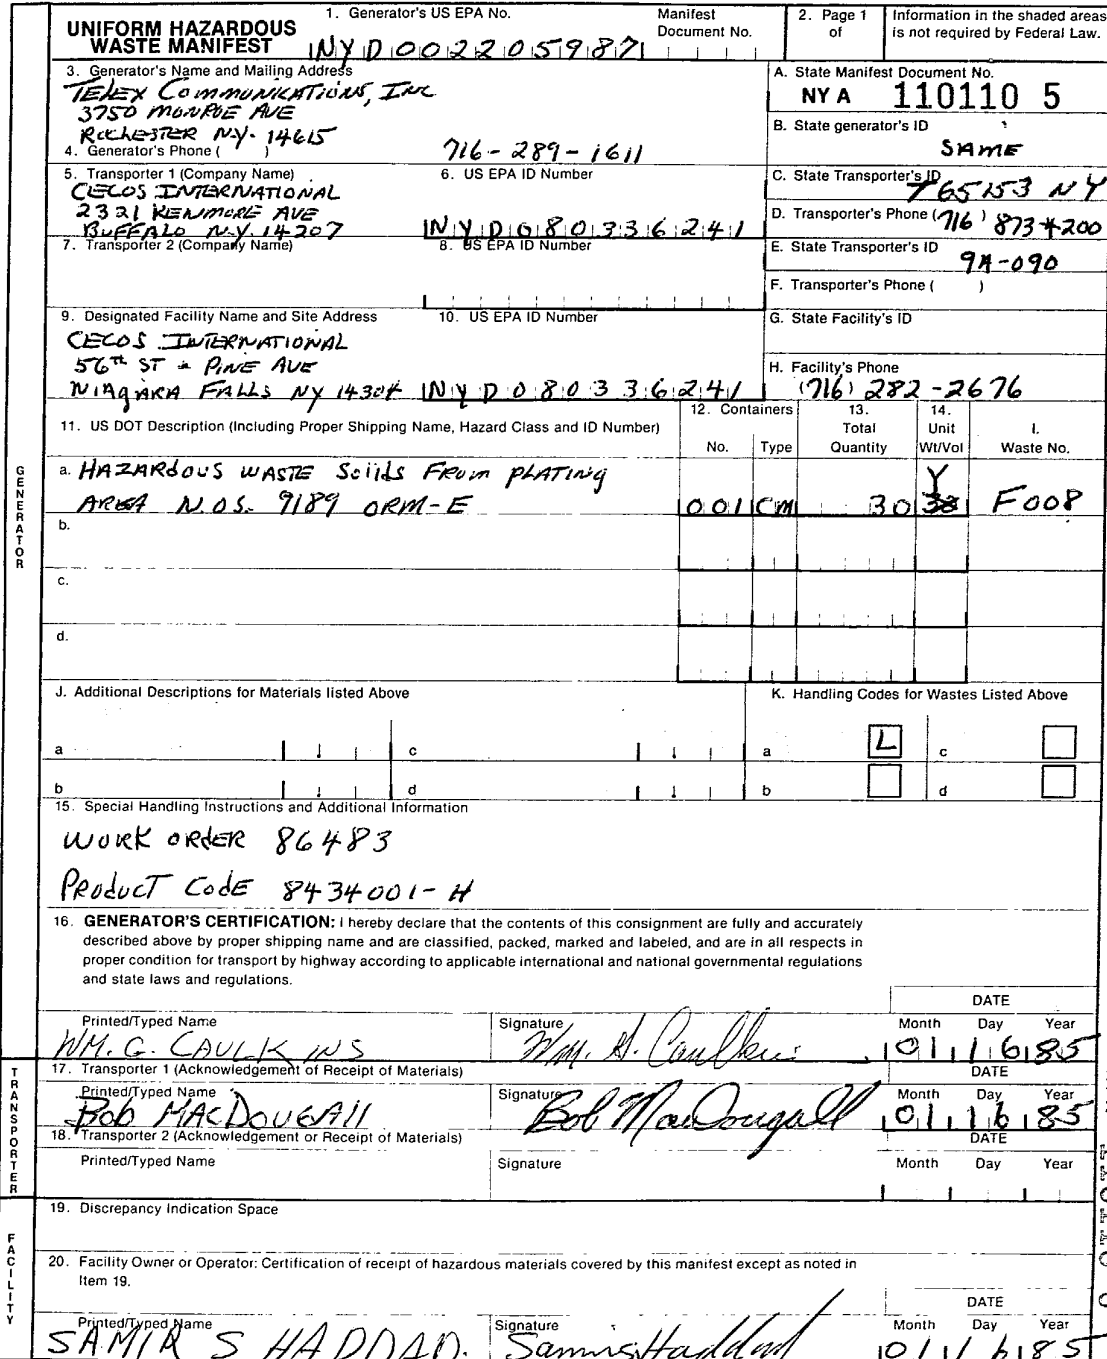 UNIFORM HAZARDOUS WASTE MANIFEST
1. Generator's US EPA No.
NYD002205987
Manifest Document No.
2. Page 1 of
Information in the shaded areas is not required by Federal Law.
3. Generator's Name and Mailing Address
TELEX COMMUNICATIONS, INC
3750 MONROE AVE
ROCHESTER N.Y. 14615
4. Generator's Phone ( ) 716-289-1611
A. State Manifest Document No.
NY A 110110 5
B. State generator's ID
SAME
5. Transporter 1 (Company Name)
CECOS INTERNATIONAL
2321 KENMORE AVE
BUFFALO N.Y. 14207
6. US EPA ID Number
NYD080336241
C. State Transporter's ID
765153 NY
D. Transporter's Phone (716) 873-4200
7. Transporter 2 (Company Name)
8. US EPA ID Number
E. State Transporter's ID
9A-090
F. Transporter's Phone ( )
9. Designated Facility Name and Site Address
CECOS INTERNATIONAL
56th ST & PINE AVE
NIAGARA FALLS NY 14304
10. US EPA ID Number
NYD080336241
G. State Facility's ID
H. Facility's Phone
(716) 282-2676
11. US DOT Description (Including Proper Shipping Name, Hazard Class and ID Number)
12. Containers
No. Type
13. Total Quantity
14. Unit Wt/Vol
I. Waste No.
a. HAZARDOUS WASTE SOlIdS FROM PLATING
AREA N.O.S. 9189 ORM-E
001 CM 30 Y F008
b.
c.
d.
J. Additional Descriptions for Materials listed Above
K. Handling Codes for Wastes Listed Above
a c a L c
b d b d
15. Special Handling Instructions and Additional Information
WORK ORDER 86483
PRODUCT CODE 8434001-H
16. GENERATOR'S CERTIFICATION: I hereby declare that the contents of this consignment are fully and accurately
described above by proper shipping name and are classified, packed, marked and labeled, and are in all respects in
proper condition for transport by highway according to applicable international and national governmental regulations
and state laws and regulations.
DATE
Printed/Typed Name Signature Month Day Year
WM. G. CAULKINS Wm. G. Caulkins 01 16 85
17. Transporter 1 (Acknowledgement of Receipt of Materials)
DATE
Printed/Typed Name Signature Month Day Year
Bob MACDOUGAll Bob MacDougall 01 16 85
18. Transporter 2 (Acknowledgement or Receipt of Materials)
DATE
Printed/Typed Name Signature Month Day Year
19. Discrepancy Indication Space
20. Facility Owner or Operator: Certification of receipt of hazardous materials covered by this manifest except as noted in
Item 19.
DATE
Printed/Typed Name Signature Month Day Year
SAMIR S HADDAD. Samir S Haddad 01 16 85
GENERATOR
TRANSPORTER
FACILITY